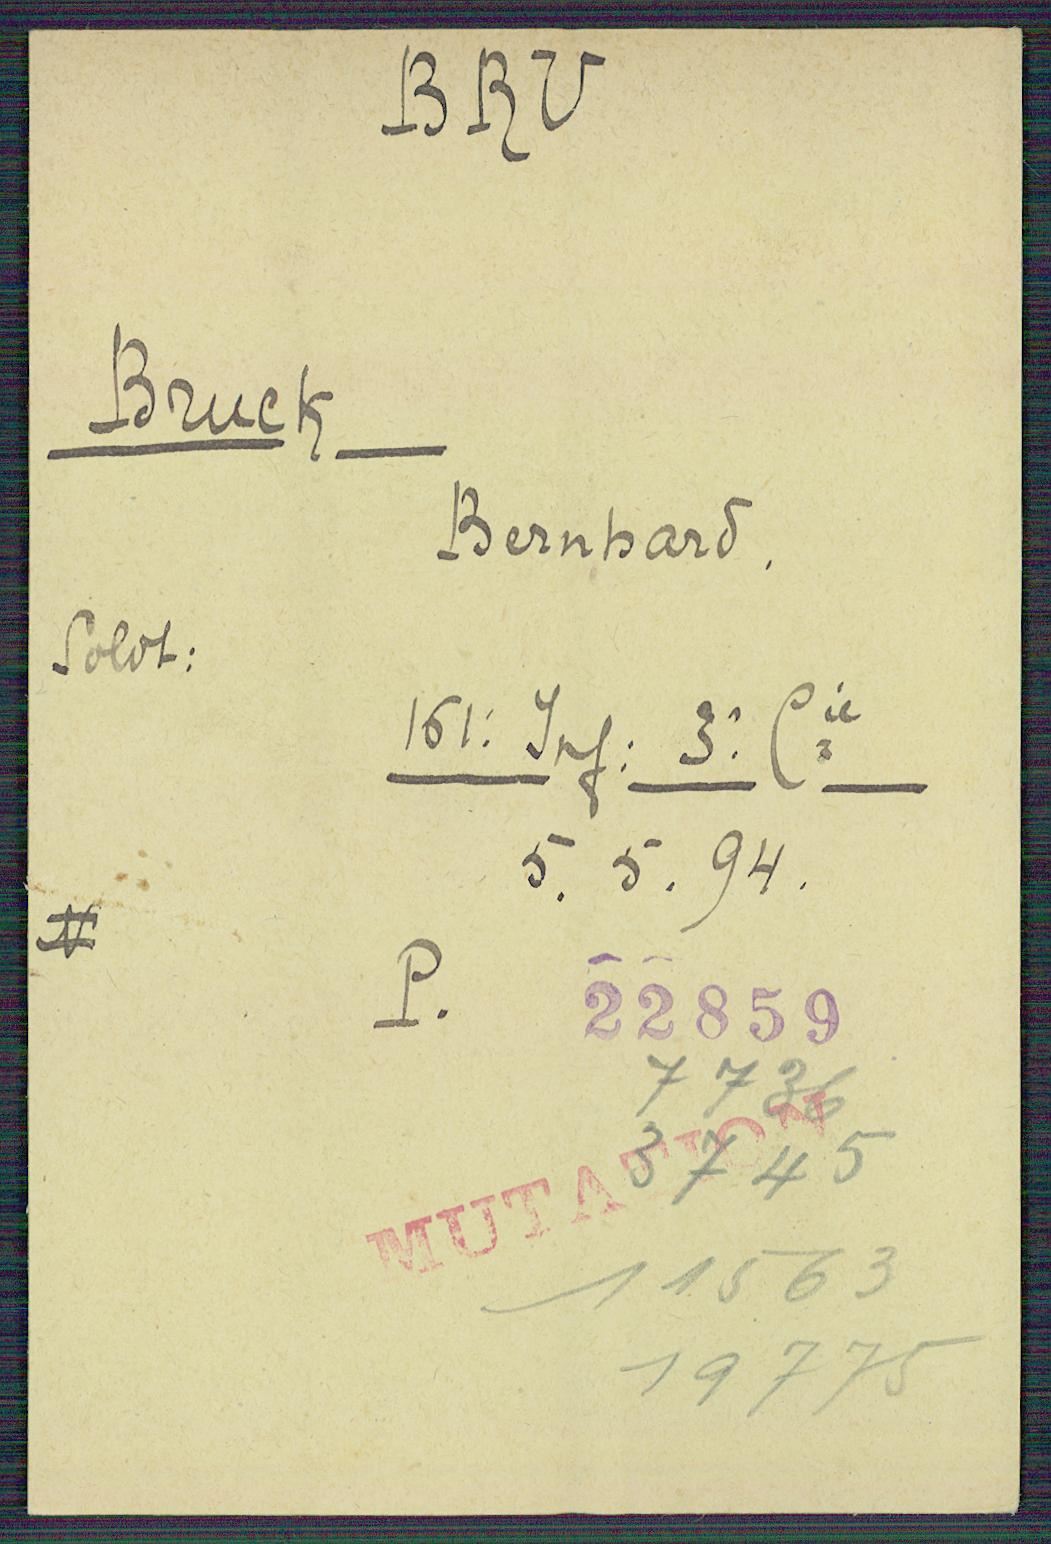 BRU
Bruck
Bernhard.
Soldt:
161: Inf: 3: Cie
5. 5. 94.
#
P. 22859
7736
3745
MUTATION
11563
19775